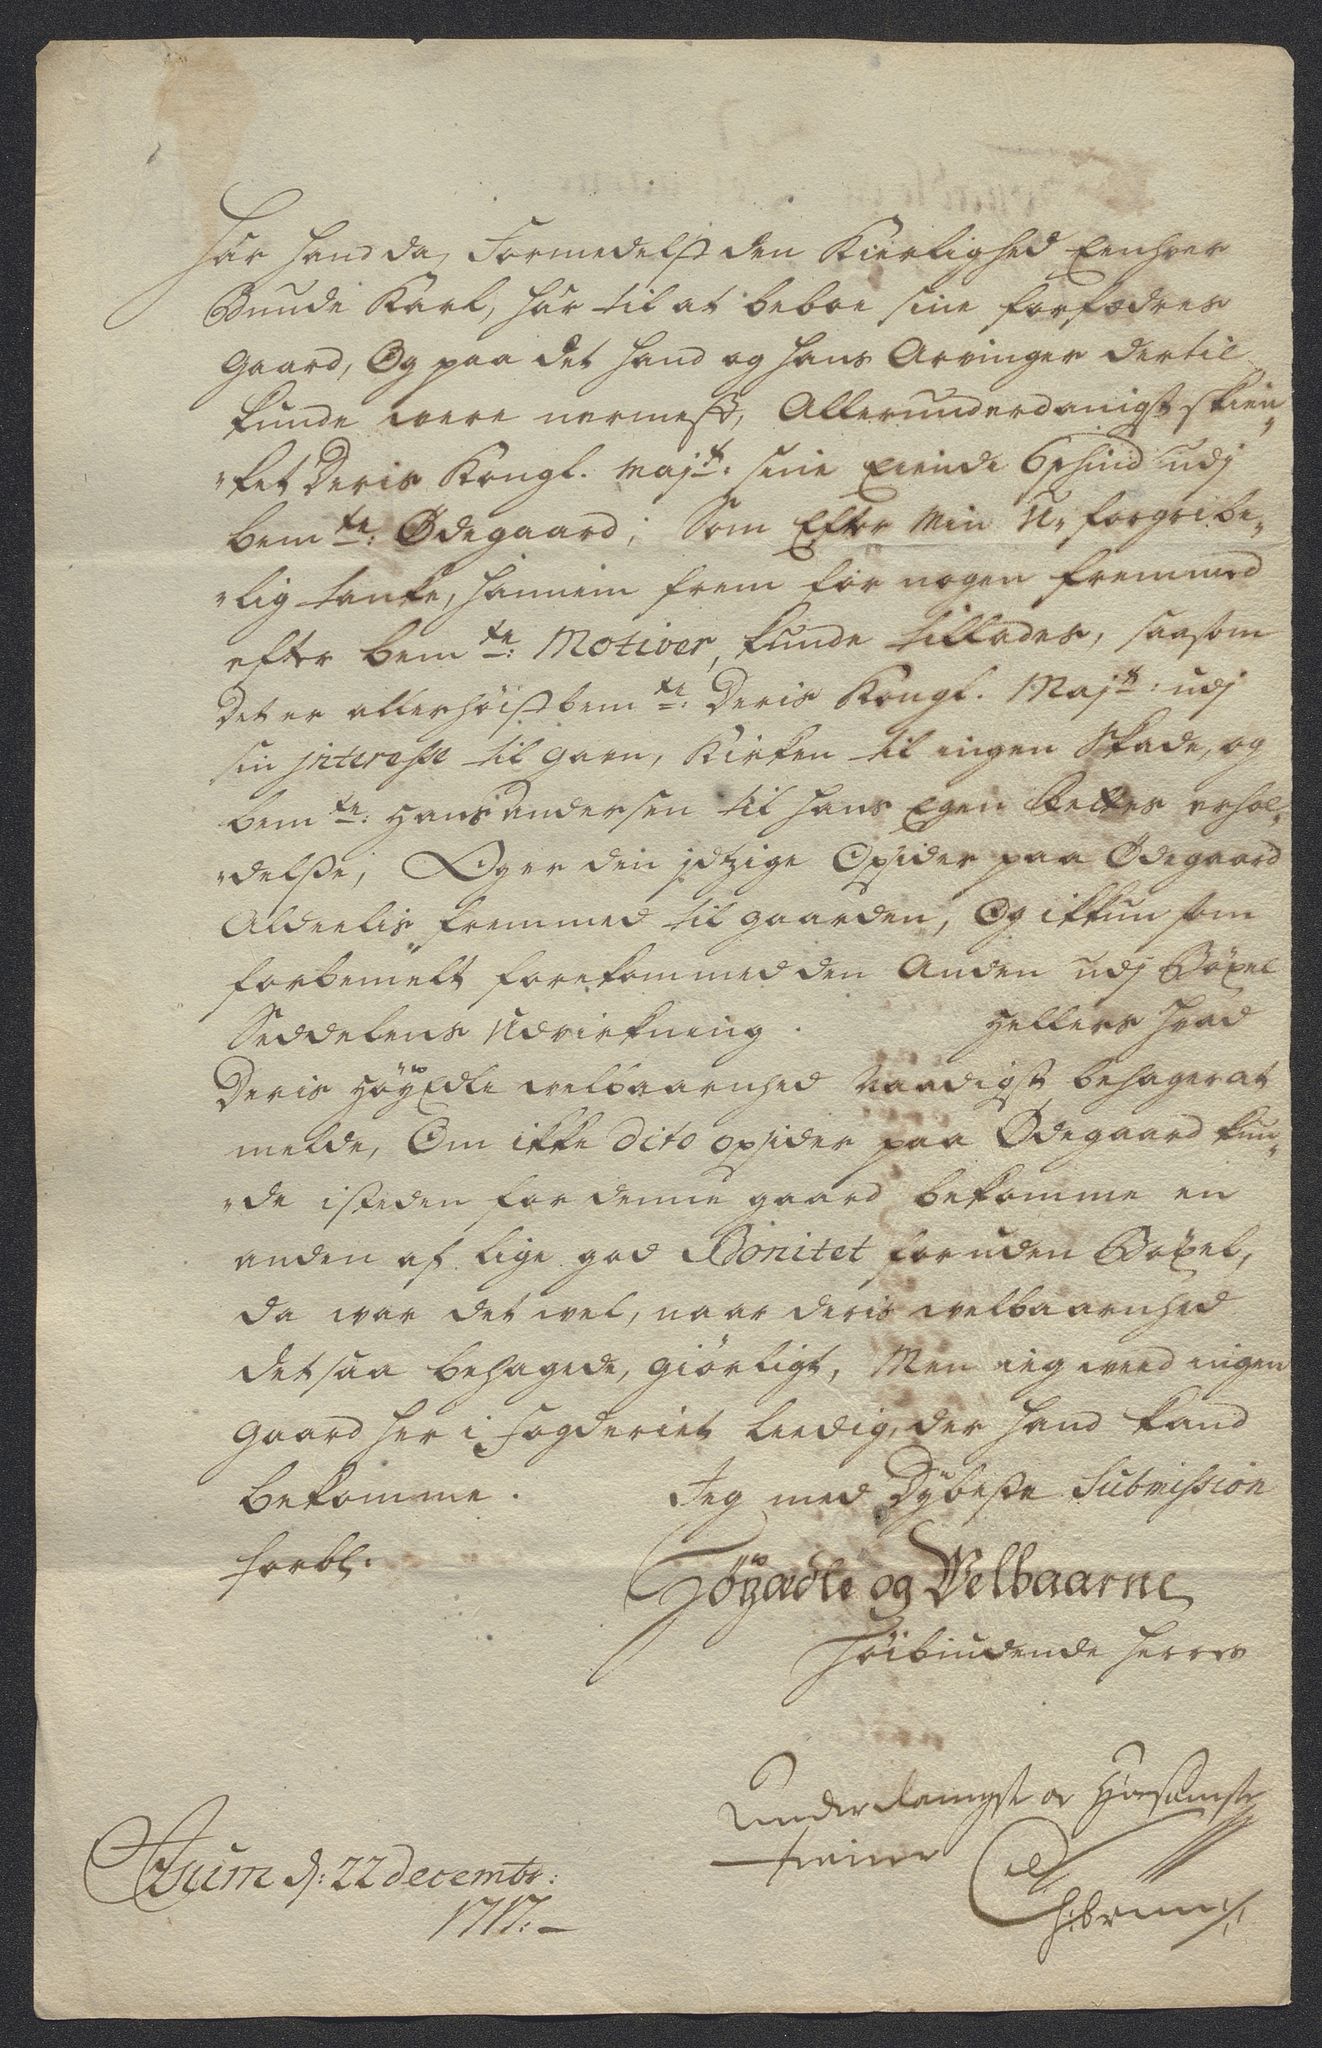 Har hand da, Formedelst den Kierlighed Eenhver
Bunde Karl, har til at beboe sine forfædres
gaard, Og paa det hand og hans Arvinger dertil
kunde were nermest, Allerunderdanigst skien„
„ket Deris Kongl. Maj:t: sine Eiende 6 shind udj
bem:te: Ødegaard; Som Efter Min U„forgribe„
„lig tanke, hannem frem for nogen fremmed
efter bem:te: Motiver, kunde tillades, saasom
det er allerhøist bem:te: Deris Kongl. Maj:ts: udj
sin jnteresse til gaen, Kirken til ingen Skade, og
bem:te: Hans Andersen til hans Egen Rettes erhol„
„delsse, Og er den jdzige Opsider paa Ødegaard
Aldeelis fremmed til gaarden, Og ikkun som
forbemelt forekommed den Anden udj Böxel
Seddelens Udvirkning. Hellers hvad
Deris HöyEdle welbaarnhed Naadigst behager at
melde, Om ikke dito opsider paa Ødegaard kun„
„de isteden for denne gaard bekomme en
anden af lige god Bonitet foruden Böxel,
da war det wel, naar deris welbaarnhed
det saa behagede, giörligt, Men ieg weed ingen
gaard her i fogderiet leedig, der hand kand
bekomme. Jeg med Dybeste Submission
forbl:
Höyædle og Velbaarne
Höibiudende Herres
Underdanigst og Hörsamste
tiener
Sum d: 22 decembr:
1717: